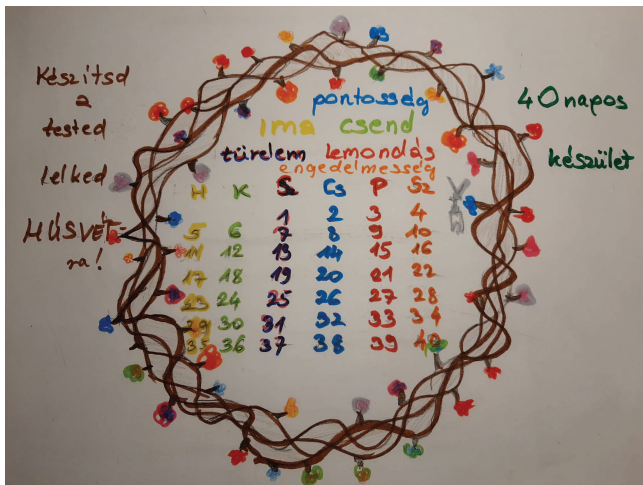 Készítsd
a
tested
lelked
HÚSVÉT-
ra!
pontosság
ima csend
türelem lemondás
engedelmesség
H K Sz Cs P Sz
1 2 3 4
5 6 7 8 9 10
11 12 13 14 15 16
17 18 19 20 21 22
23 24 25 26 27 28
29 30 31 32 33 34
35 36 37 38 39 40
40 napos
készület